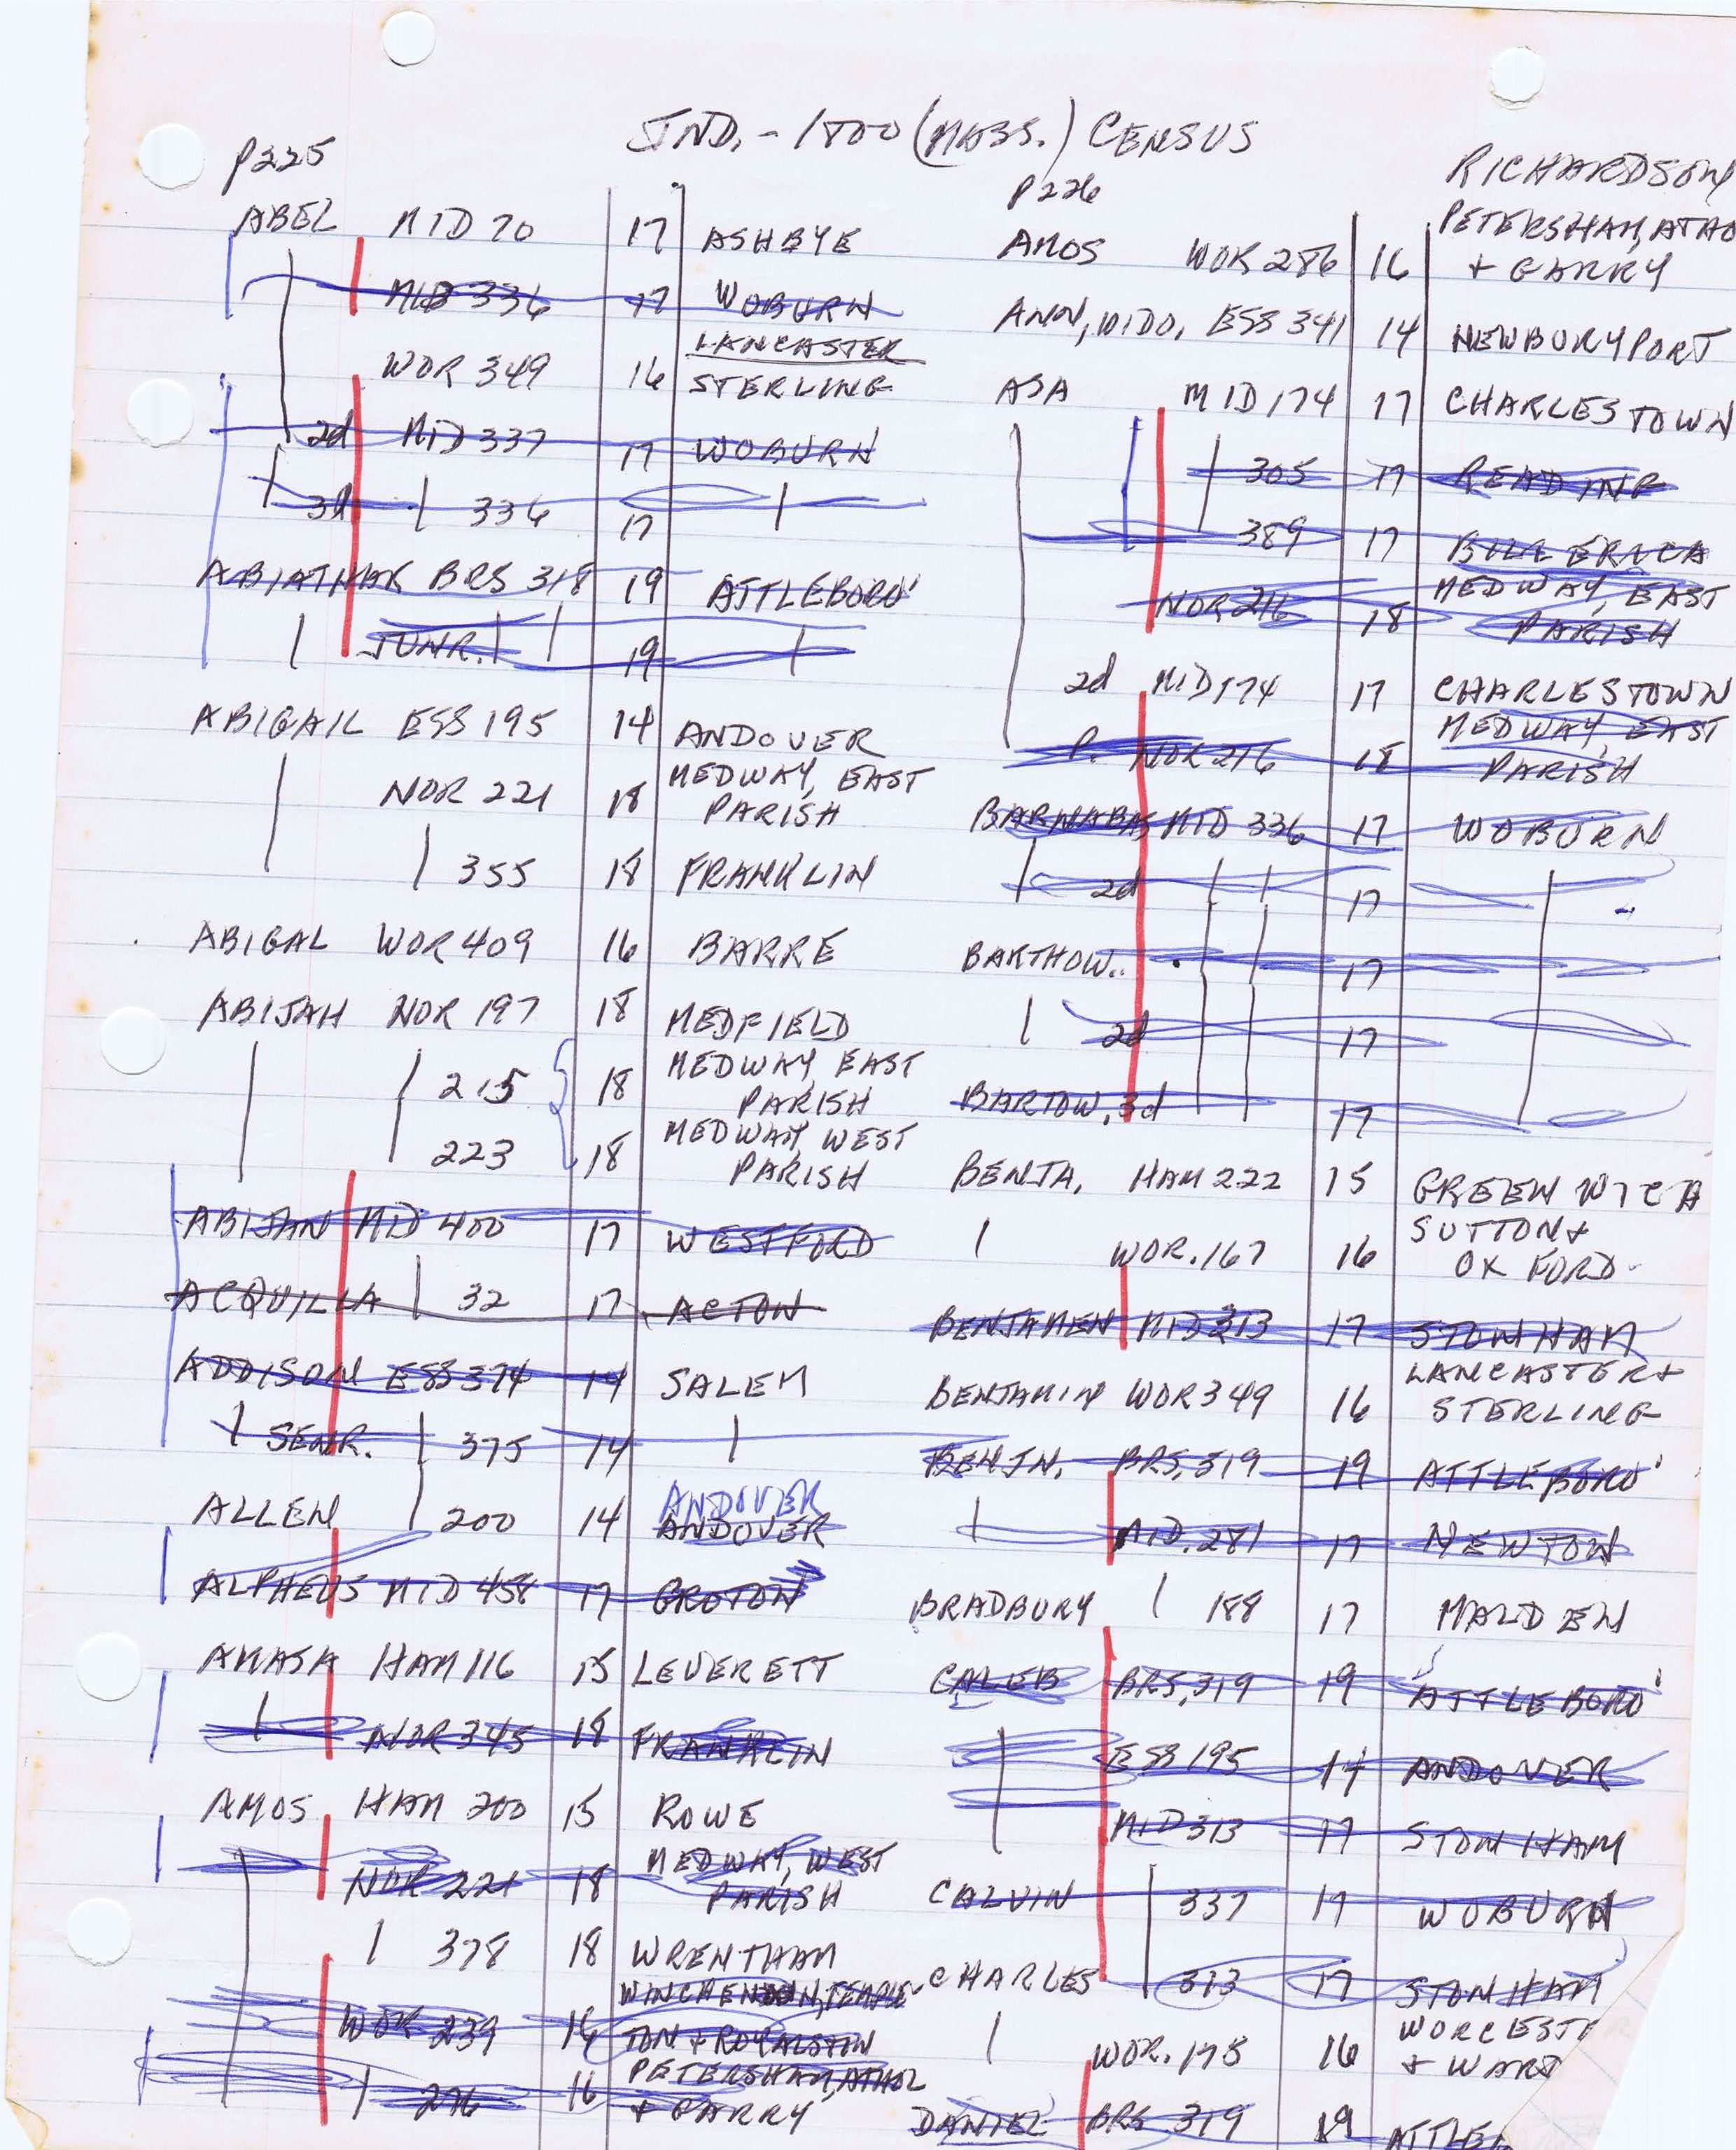 IND. - 1800 (MASS.) CENSUS
RICHARDSON
P225
ABEL MID 70 17 ASHBYE
MID 336 17 WOBURN
WOR 349 16 LANCASTER
STERLING
2d MID 337 17 WOBURN
3d | 336 17 |
ABIATHAR BRS 318 19 ATTLEBORO'
| JUNR. | | 19 |
ABIGAIL ESS 195 14 ANDOVER
NOR 221 18 MEDWAY, EAST
PARISH
| 355 18 FRANKLIN
ABIGAL WOR 409 16 BARRE
ABIJAH NOR 197 18 MEDFIELD
| 215 18 MEDWAY, EAST
PARISH
223 18 MEDWAY, WEST
PARISH
ABIJAN MID 400 17 WESTFORD
ACQUILLA | 32 17 ACTON
ADDISON ESS 374 14 SALEM
| SENR. | 375 14 |
ALLEN | 200 14 ANDOVER
ANDOVER
ALPHEUS MID 458 17 GROTON
AMASA HAM 116 15 LEVERETT
| NOR 345 18 FRANKLIN
AMOS HAM 200 15 ROWE
NOR 221 18 MEDWAY, WEST
PARISH
| 378 18 WRENTHAM
WOR 239 16 WINCHENDON, TEMPLE-
TON + ROYALSTON
| 276 16 PETERSHAM, ATHOL
+ GARRY
P226
AMOS WOR 286 16 PETERSHAM, ATHO
+ GARRY
ANN, WIDO, ESS 341 14 NEWBURYPORT
ASA MID 174 17 CHARLESTOWN
| 305 17 READING
389 17 BILLERICA
NOR 216 18 MEDWAY, EAST
PARISH
2d MID 174 17 CHARLESTOWN
P. NOR 216 18 MEDWAY, EAST
PARISH
BARNABAS MID 336 17 WOBURN
| 2d | | 17 |
BARTHOW.. | | 17
| 2d | | 17
BARTOW, 3d | | 17
BENJA, HAM 222 15 GREENWICH
| WOR. 167 16 SUTTON +
OXFORD
BENJAMEN MID 313 17 STONHAM
BENJAMIN WOR 349 16 LANCASTER +
STERLING
BENJN, BRS, 319 19 ATTLEBORO'
| MID. 281 17 NEWTON
BRADBURY | 188 17 MALDEN
CALEB BRS, 319 19 ATTLEBORO'
ESS 195 14 ANDOVER
MID 313 17 STONHAM
CALVIN | 337 17 WOBURN
CHARLES | 313 17 STONHAM
| WOR. 175 16 WORCESTE
+ WARD
DANIEL BRS 319 19 ATTLE